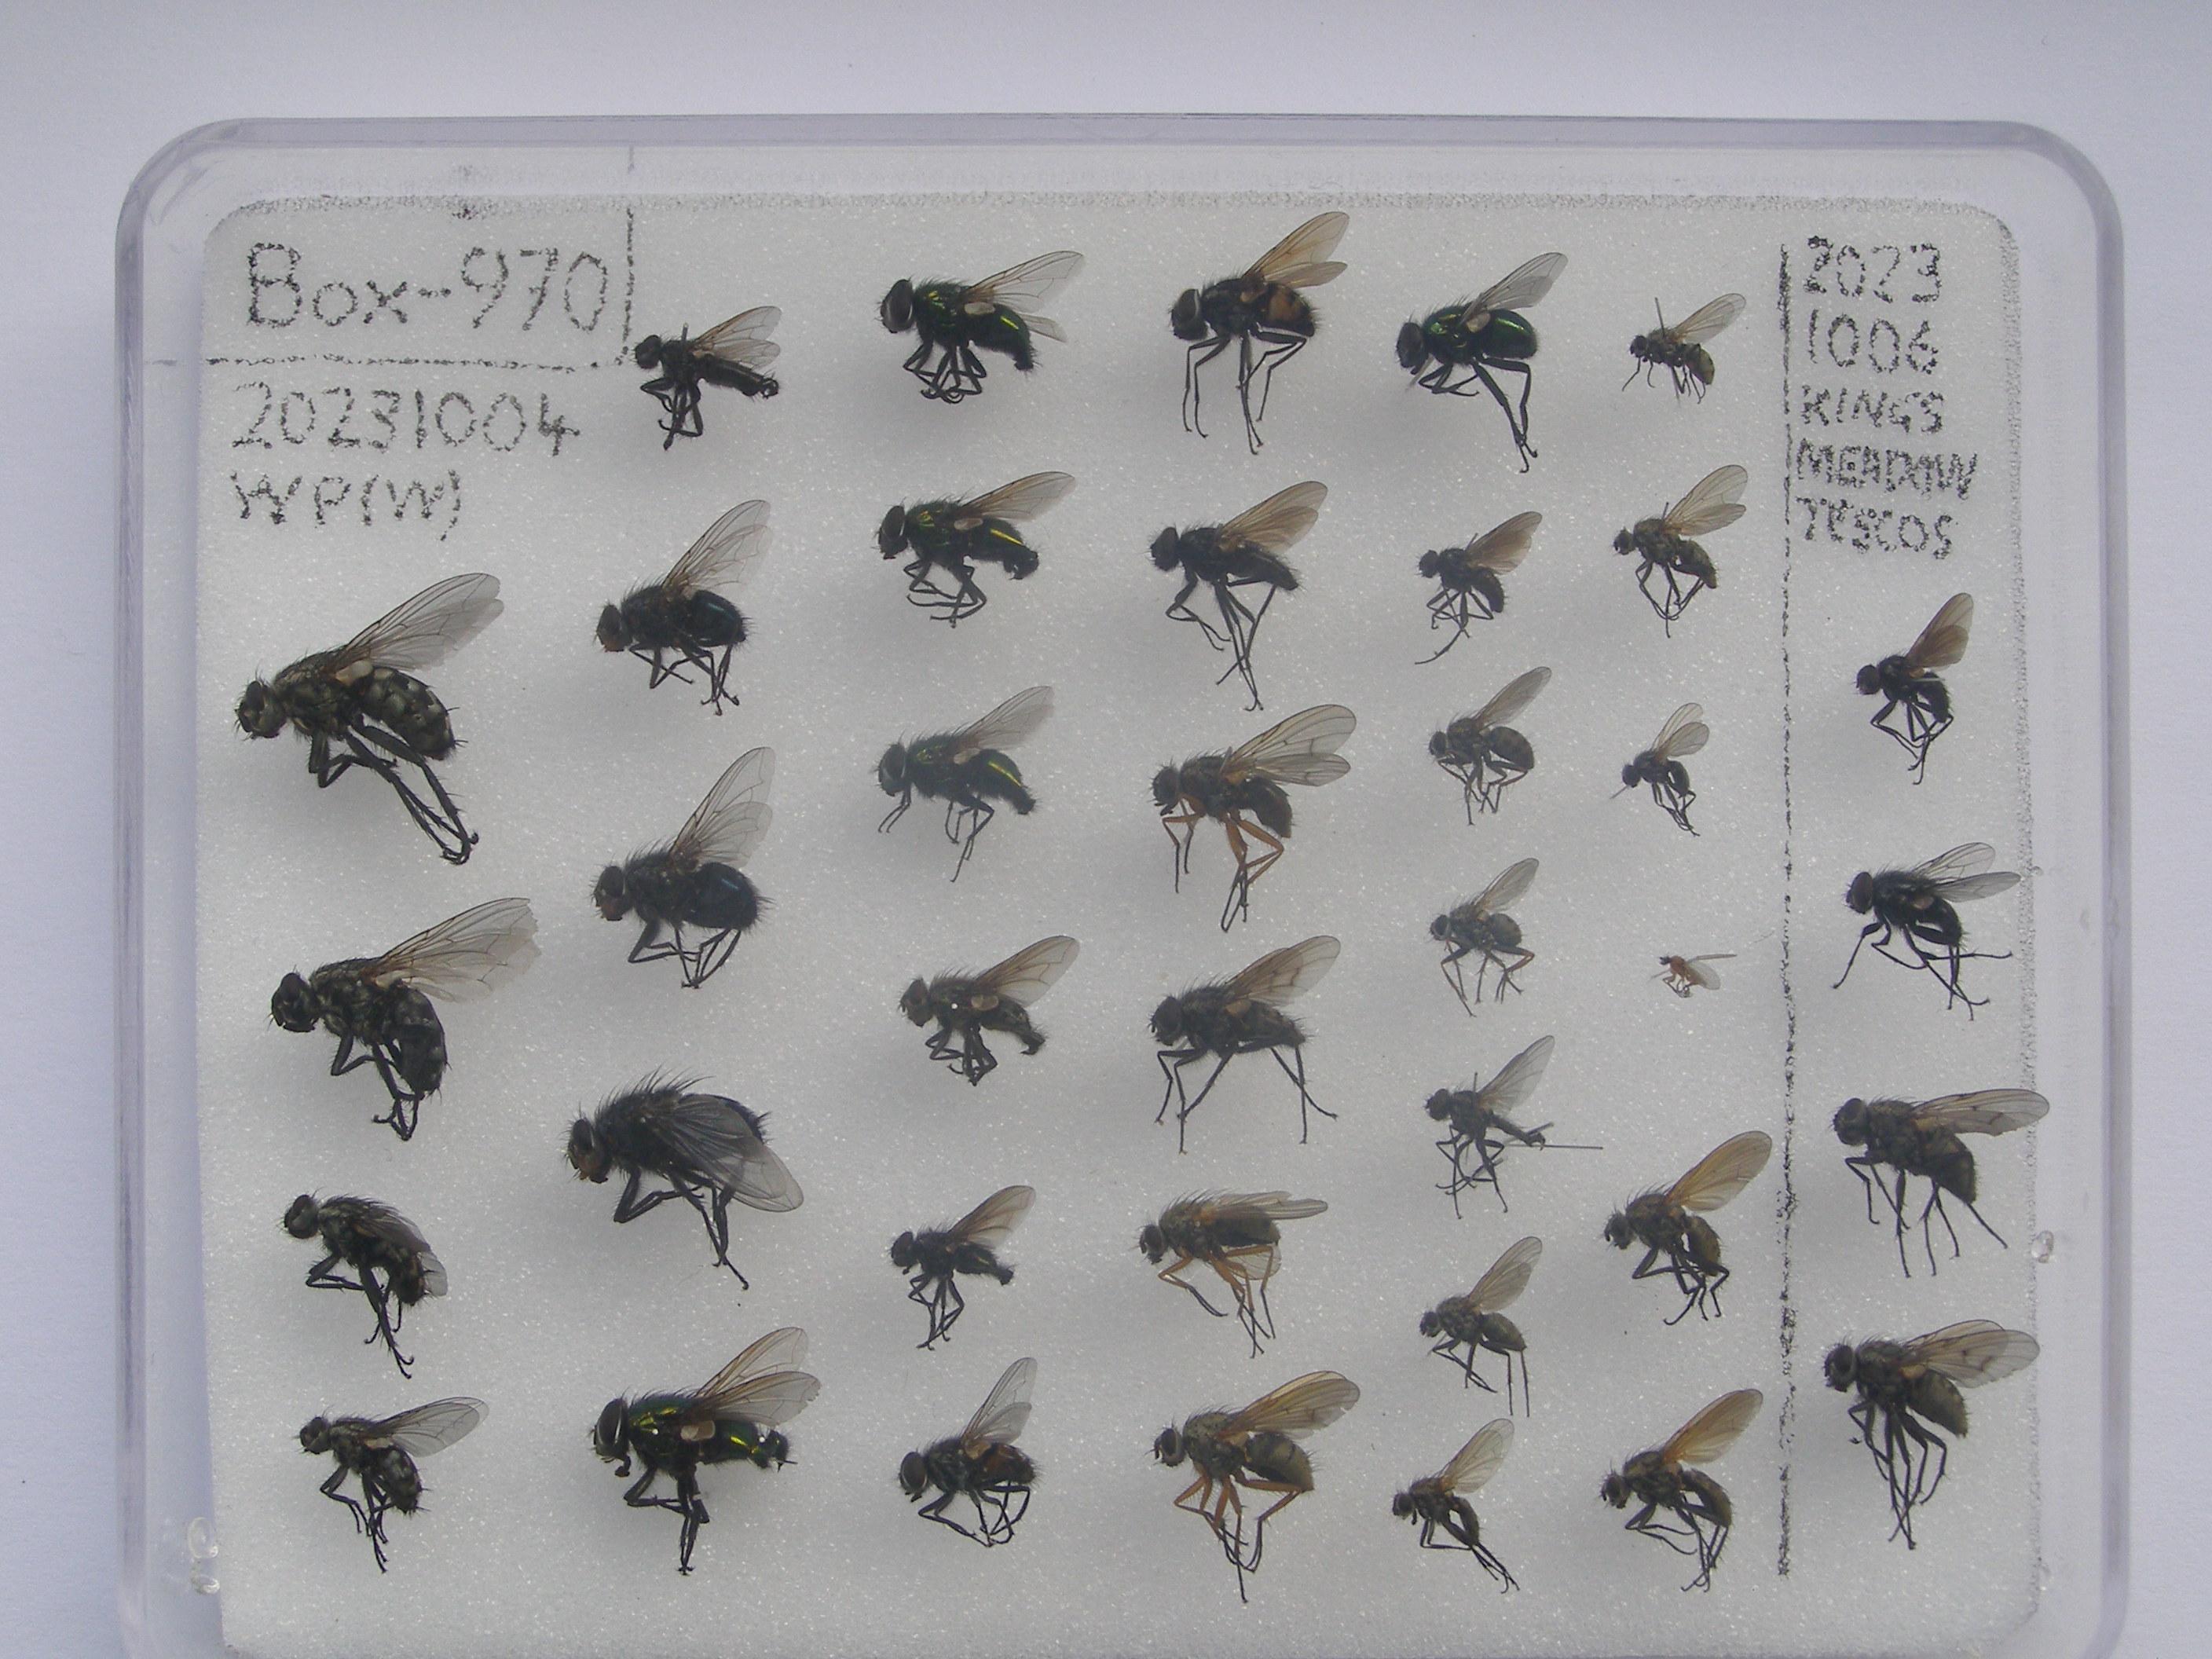 Box-970
20231004
WP(W)
2023
1006
KINGS
MEADOW
TESCOS